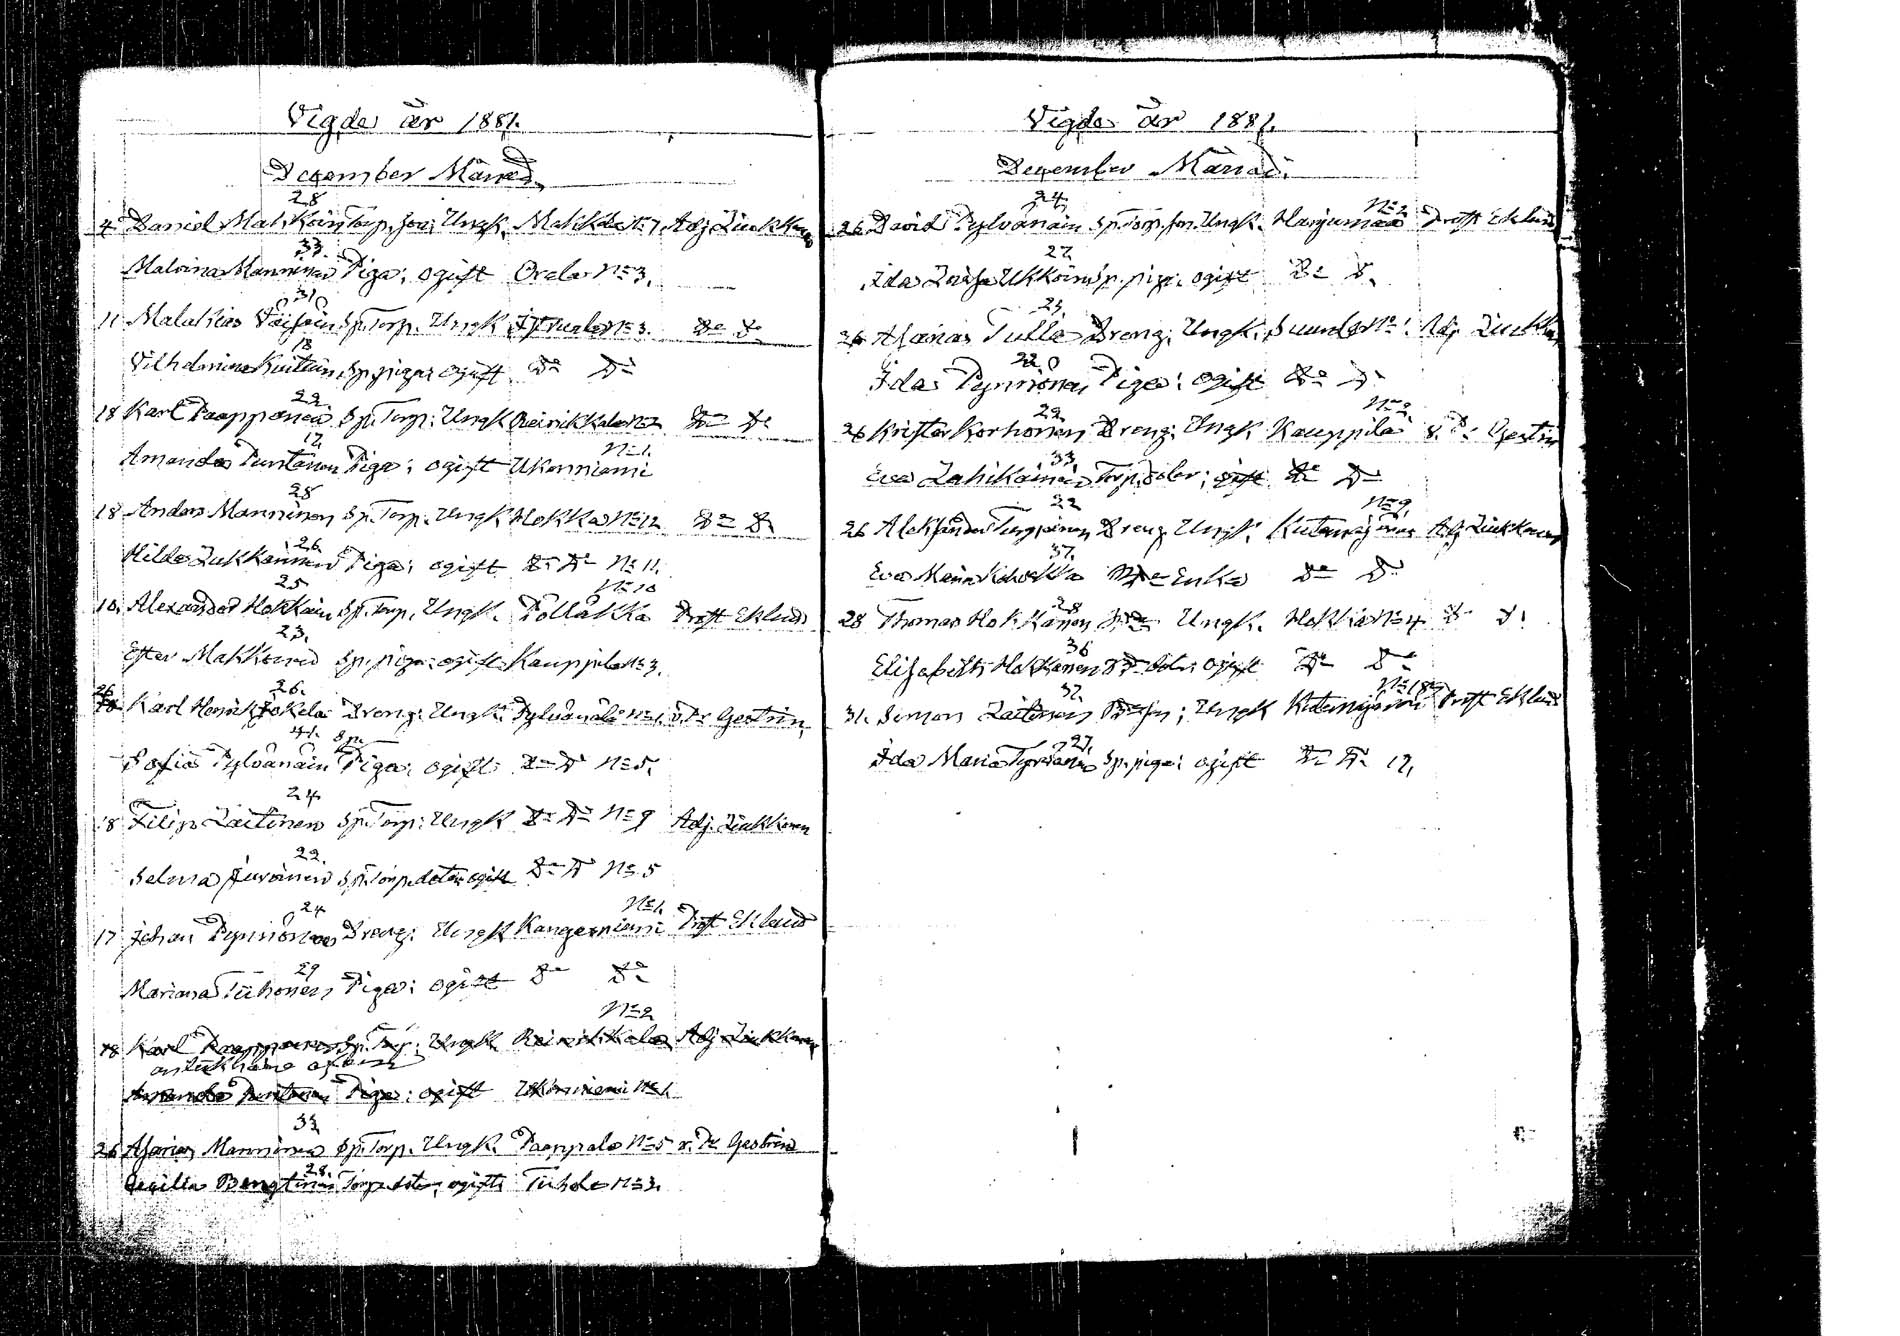 Vigde år 1881.
December Månad.
28
4 Daniel Torp. son; Ungk. Adj. Liukkonen
33.
Malvina Manninen Piga; ogift Orala N=3.
31
11 Malakias Väisäin Sp. Torp. Ungk. N=3. D= D=
18
Vilhelmina Kuittin, Sp. piga; ogift D= D=
22.
18 Karl Paappanen Sp. Torp; Ungk Reinikkala N=2 D= D=
17 N=1.
Amanda Puntanen Piga; ogift Ukonniemi
28
18 Anders Manninen Sp. Torp. Ungk Hokka N=12 D= D.
26.
Hilda Lukkarinen Piga; ogift D= D= N= 11.
25 N= 10
10. Alexander Hokkain Sp. Torp. Ungk. Pölläkkä Prost Eklund
23.
Ester Makkoin Sp. piga; ogift Kauppila N=3.
26.
26 Karl Henrik Jokela Dreng; Ungk. Pylvänälä N=1. v. P. Gestrin,
41. Sp.
Sofia Pylvänäin Piga; ogift D= D= N=5.
24
18 Filip Laitinen Sp. Torp; Ungk D= D= N= 9 Adj. Liukkonen
22.
Selma Sp. Torp. dotter ogift D= D= N=5
24 N=1.
17 Johan Pynnönen Dreng; Ungk Kangasniemi Prost Eklund
29
Mariana Tiihonen Piga; ogift D= D=
N=2
18 Karl Paappanen Sp. Torp; Ungk. Reinikkala Adj. Liukkonen

Amanda Puntanen Piga; ogift Ukonniemi N=1.
33
26 Asarias Manninen Sp. Torp. Ungk. Paappala N=5 v. P. Gestrin
28.
Cecilia Bengtinen Torp. dotter, ogift Tiihola N=3.
Vigde år 1881.
December Månad.
24 N=2
26 David Pylvänäin Sp. Torp. son. Ungk. Harjumaa Prost Eklund
27.
Ida Ukkoin Sp. piga; ogift D= D.
23.
26 Asarias Tulla Dreng; Ungk. Suunsaari N= 1. Adj Liukkonen
22
Ida Pynnönen Piga; ogift D= D=
22 N=2.
26 Krister Korhonen Dreng; Ungk Kauppila v. P. Gestrin
33.
Eva Lahikainen Torp. dotter; ogift D= D=
22 N=9.
26 Aleksander Dreng Ungk. Kutemajärvi Adj Liukkonen
37.
Eva Maria Enka D= D=
28
28 Thomas Hokkanen Ungk. Hokka N=4 D= D.
36
Elisabeth Hokkanen dotter; ogift D= D=
32. N=18
31. Simon Laitinen son; Ungk Kutemajärvi Prost Eklund
27.
Ida Maria Sp. piga; ogift D= D= 12.